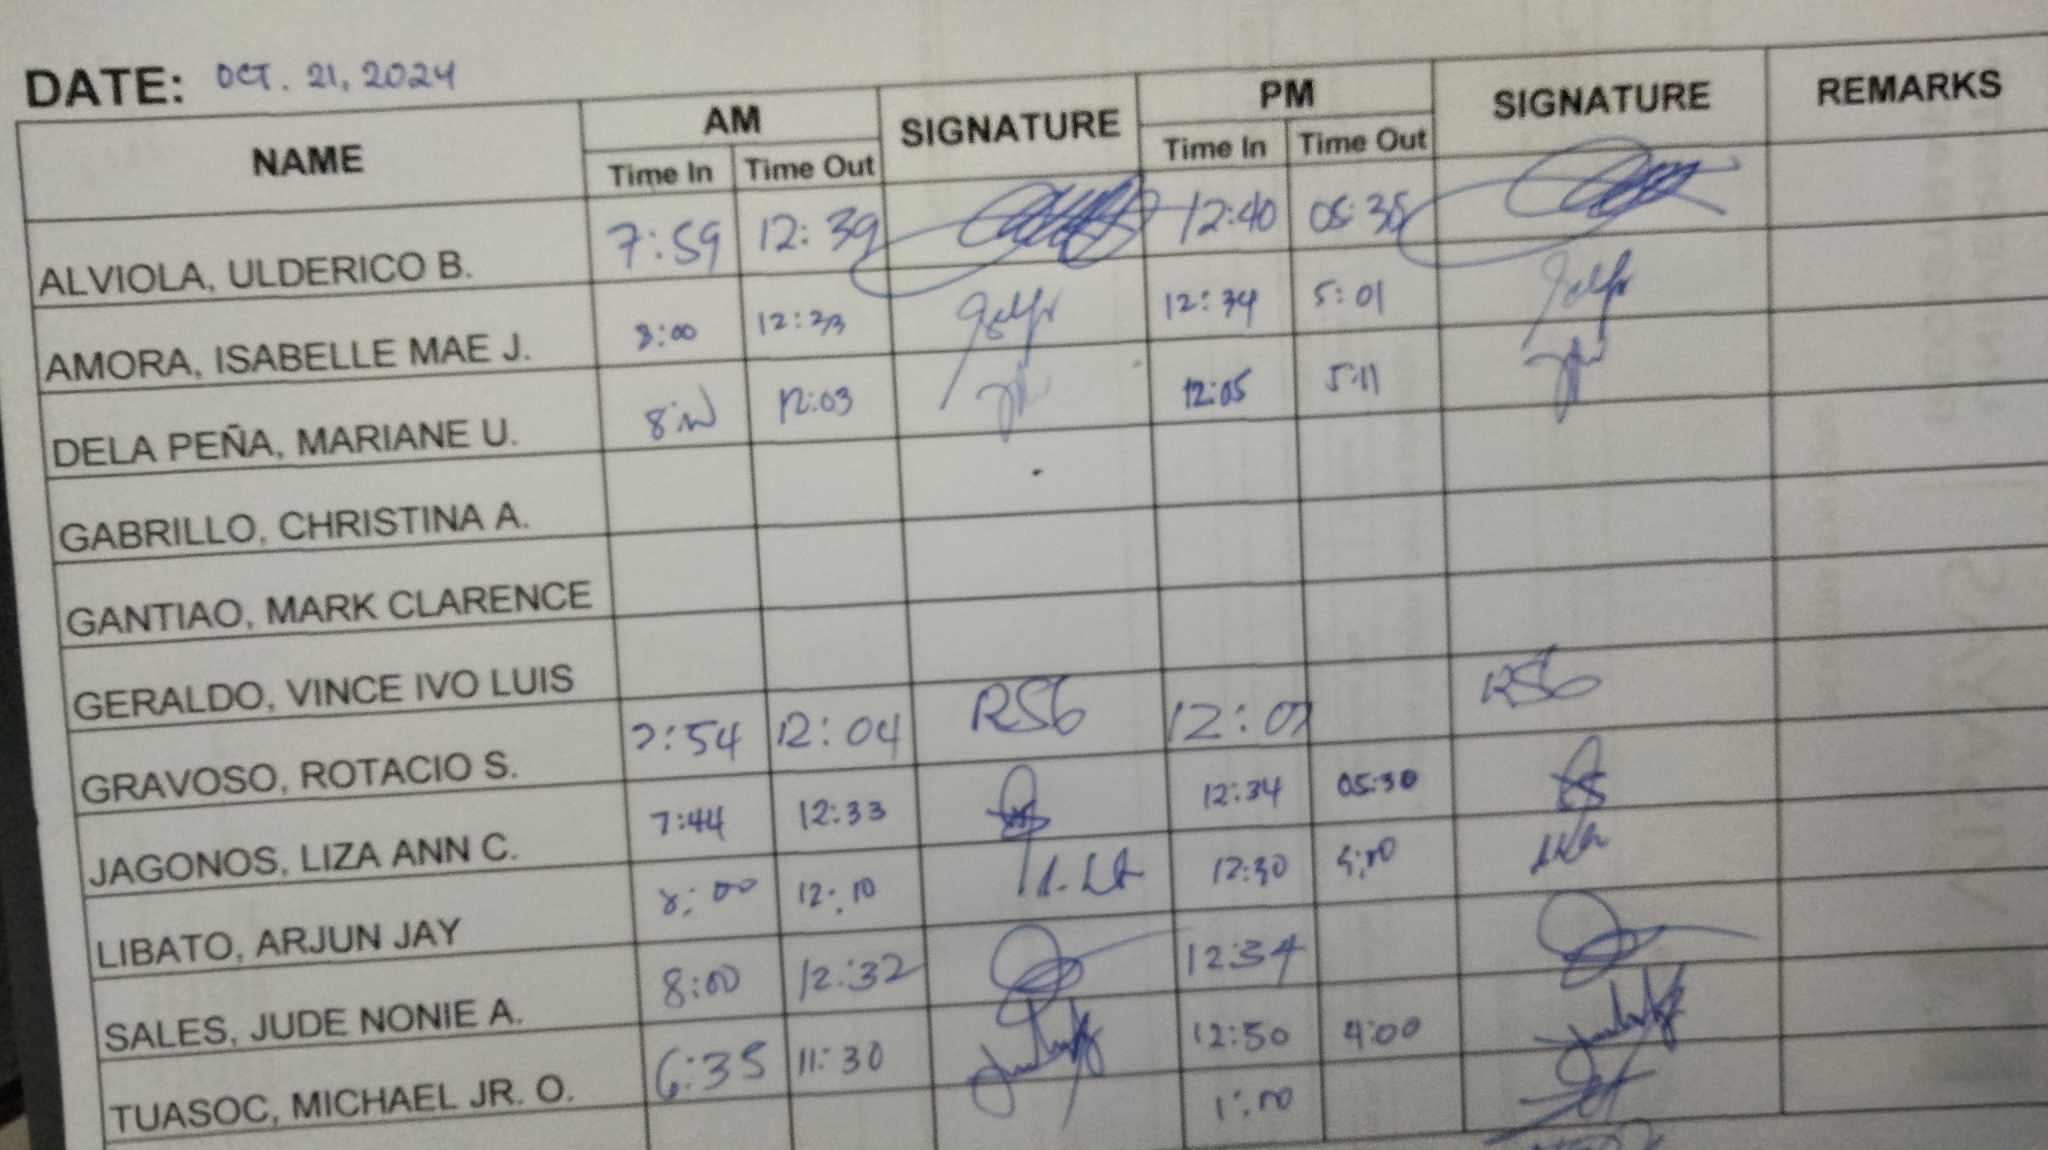 DATE: OCT. 21, 2024
NAME AM SIGNATURE PM SIGNATURE REMARKS
Time In Time Out Time In Time Out
ALVIOLA, ULDERICO B. 7:59 12:39 12:40 05:35
AMORA, ISABELLE MAE J. 8:00 12:23 12:34 5:01
DELA PEÑA, MARIANE U. 12:03 12:05 5:11
GABRILLO, CHRISTINA A.
GANTIAO, MARK CLARENCE
GERALDO, VINCE IVO LUIS
GRAVOSO, ROTACIO S. 7:54 12:04 RSG 12:07 RSG
JAGONOS, LIZA ANN C. 7:44 12:33 12:34 05:30
LIBATO, ARJUN JAY 8:00 12:10 12:30
SALES, JUDE NONIE A. 8:00 12:32 12:34
TUASOC, MICHAEL JR. O. 6:35 11:30 12:50 4:00
1:00